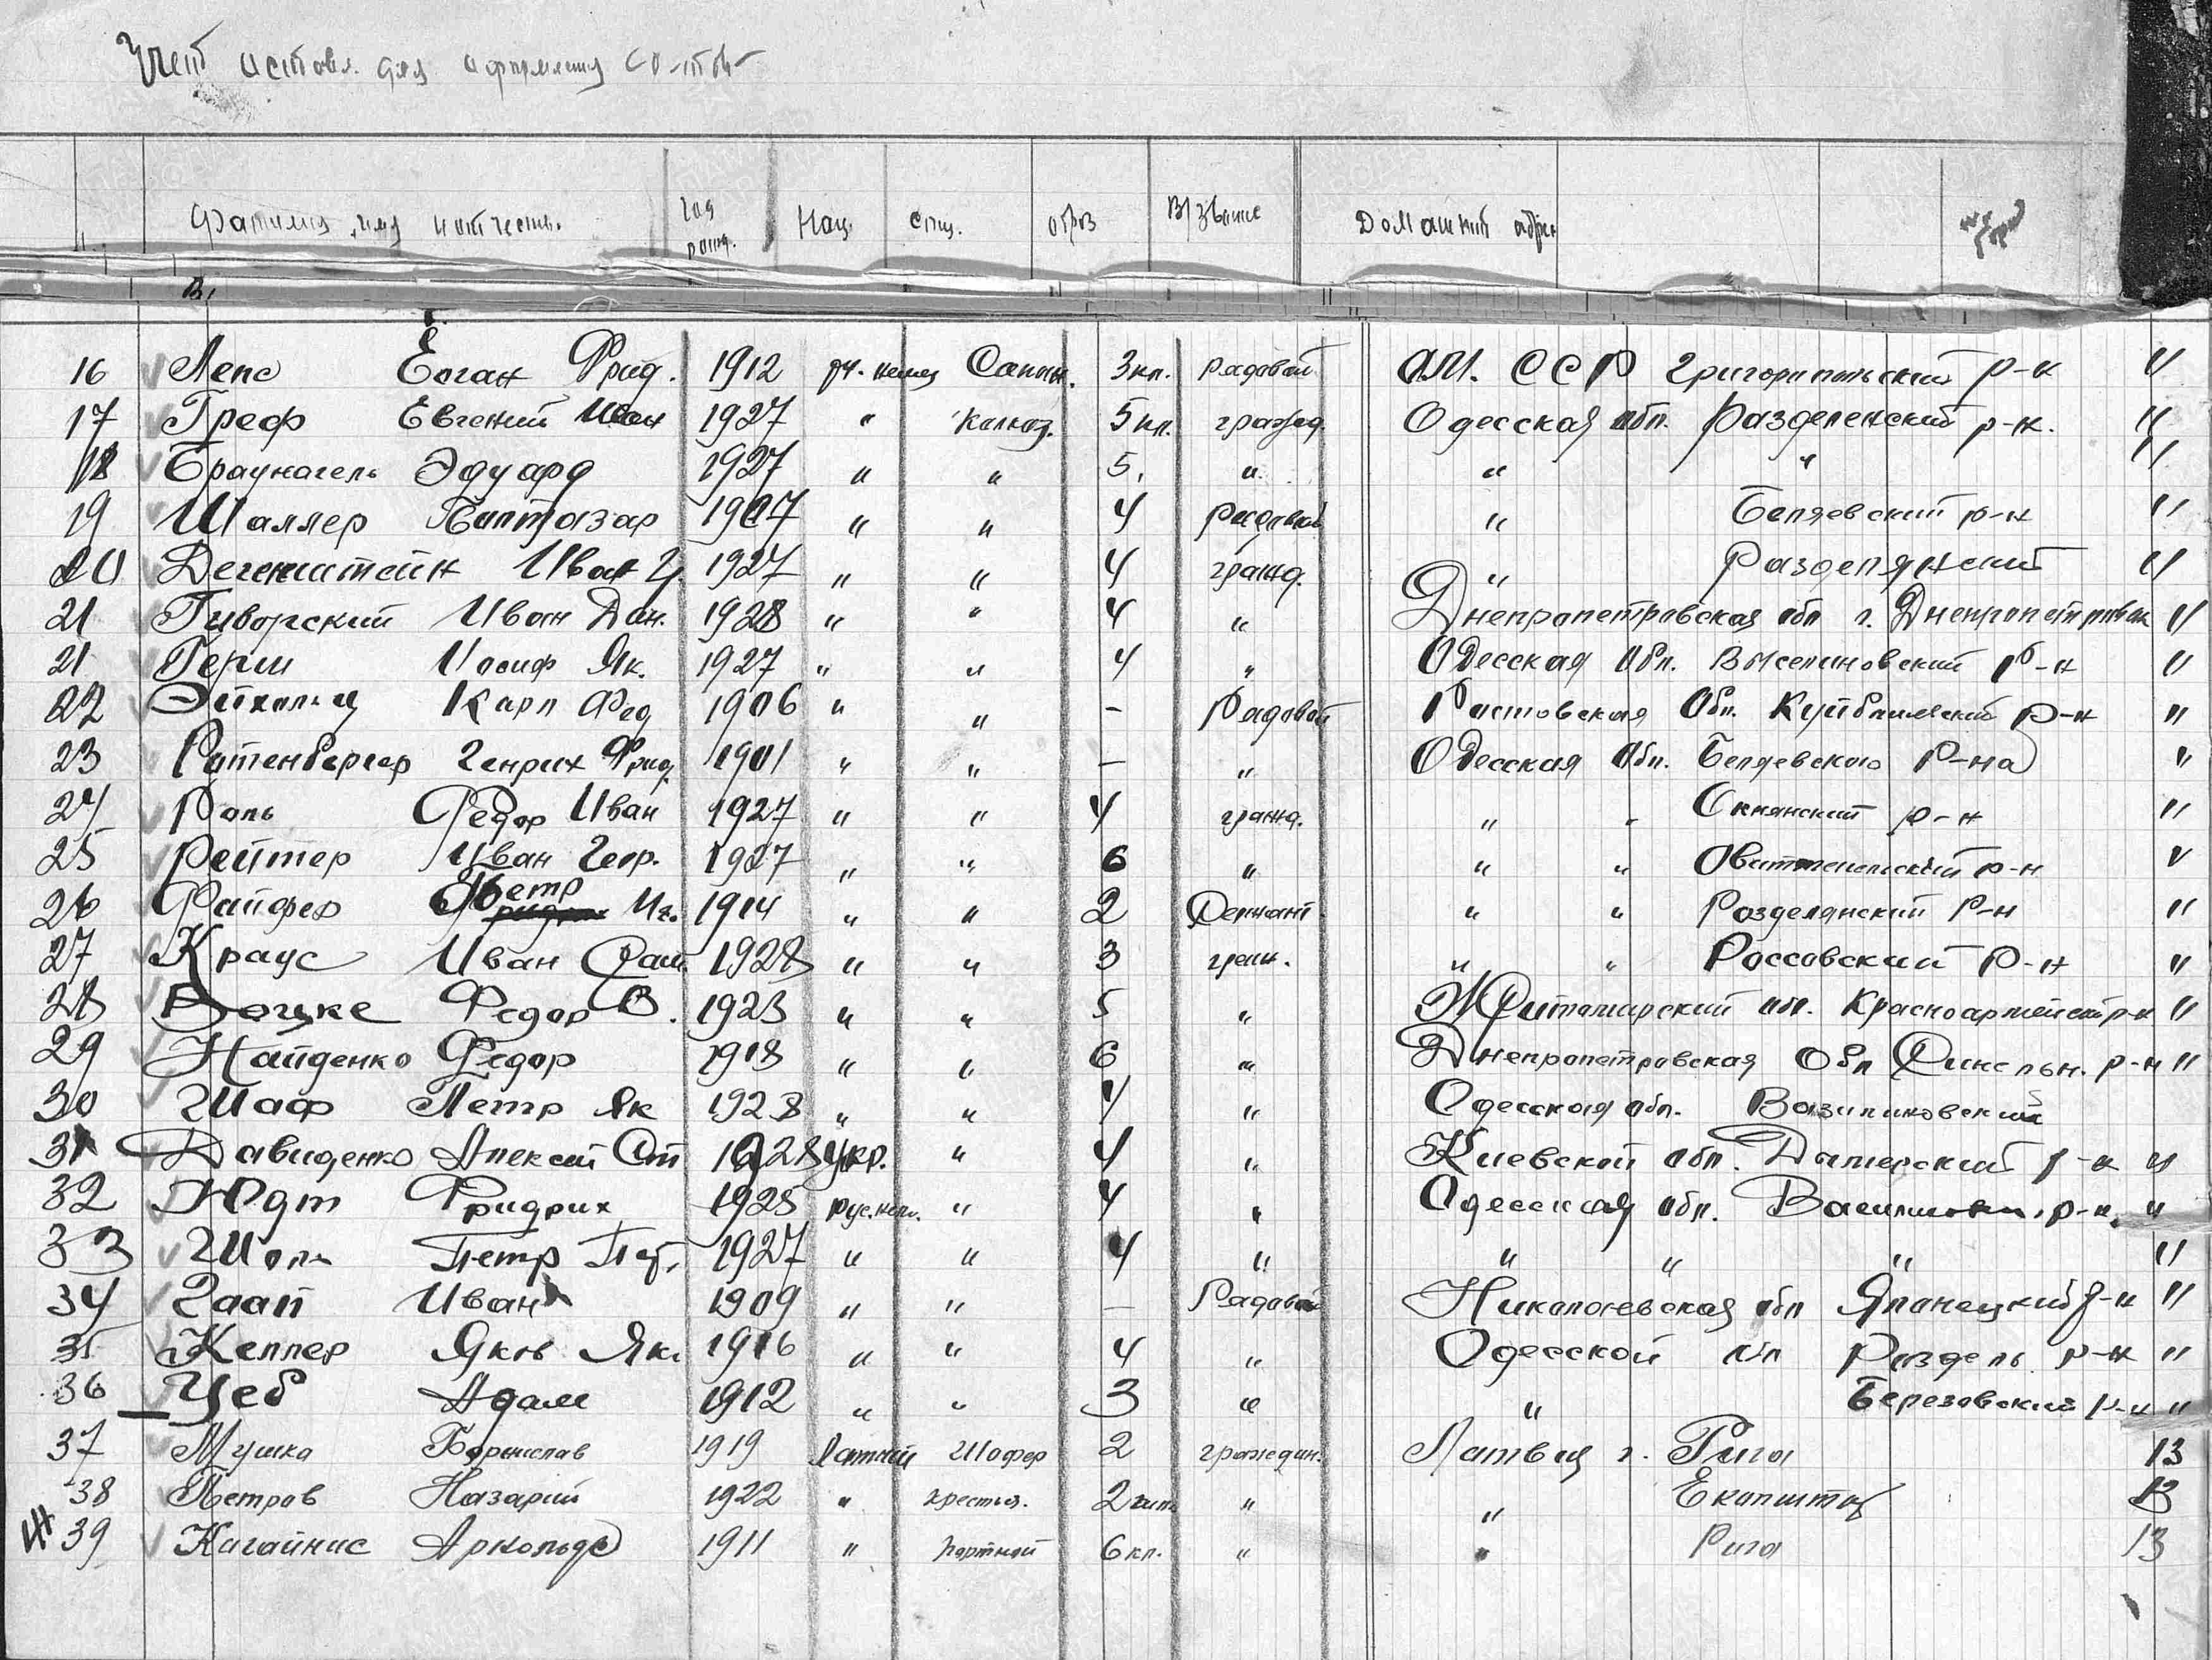 Учет для
Фамилия, имя и отчество. год рожд. Нац. спец. образ В/звание Домашний адрес
16 Лепс Еоган Фрид. 1912 ру. немец Сапож. 3 кл. Радовой А.М. ССР Григориопольский р-н "
17 Греф Евгений Иван 1927 " Колхоз. 5 кл. гражд. Одесская обл. Разделенский р-н. "
18 Браунагель Эдуард 1927 " " 5. " " " "
19 Шаллер Балтазар 1907 " " 4 Радовой " Беляевский р-н "
20 Дегенштейн Иван 1927 " " 4 гражд. " Разделянский "
21 Гиворский Иван Дан. 1928 " " 4 " Днепропетровская обл г. Днепропетровск "
21 Герш Иосиф Як. 1927 " " 4 " Одесская Обл. р-н "
22 Карл Фед 1906 " " - Радовой Ростовская Обл. р-н "
23 Ротенбергер Генрих Фрид. 1901 " " - " Одесская Обл. Беляевского р-на "
24 Роль Федор Иван 1927 " " 4 гражд. " " Окнянский р-н "
25 Рейтер Иван Геор. 1927 " " 6 " " " р-н "
26 Файфер Петр Иг. 1914 " " 2 Сержант " " Розделянский Р-н "
27 Краус Иван 1928 " " 3 граж. " " Россовский Р-н "
28 Федор В. 1923 " " 5 " Житомирский обл. Красноармейск р-н "
29 Найденко Федор 1918 " " 6 " Днепропетровская Обл Синельн. р-н "
30 Шаф Петр Як 1928 " " 4 " Одесская обл. Вазилиновский
31 Давиденко Алексей Ст 1928 Укр. " 4 " Киевской обл. Дымерский р-н "
32 Юдт Фридрих 1925 рус. нем. " 4 " Одесская обл. р-н. "
33 Петр Пет. 1927 " " 4 " " " " "
34 Гаап Иван 1909 " " - Радовой Николаевская обл Яланецкий р-н "
35 Келлер Яков Як. 1916 " " 4 " Одесской обл Раздель р-н "
36 Цеб Адам 1912 " " 3 " " Березовский р-н "
37 Мушка Борнислав 1919 Латыш Шофер 2 граждан. Латвия г. Рига 13
38 Петров Назарий 1922 " крестья. 2 " " 13
39 Кигайнис Арнольде 1911 " портной 6 кл. " " Рига 13